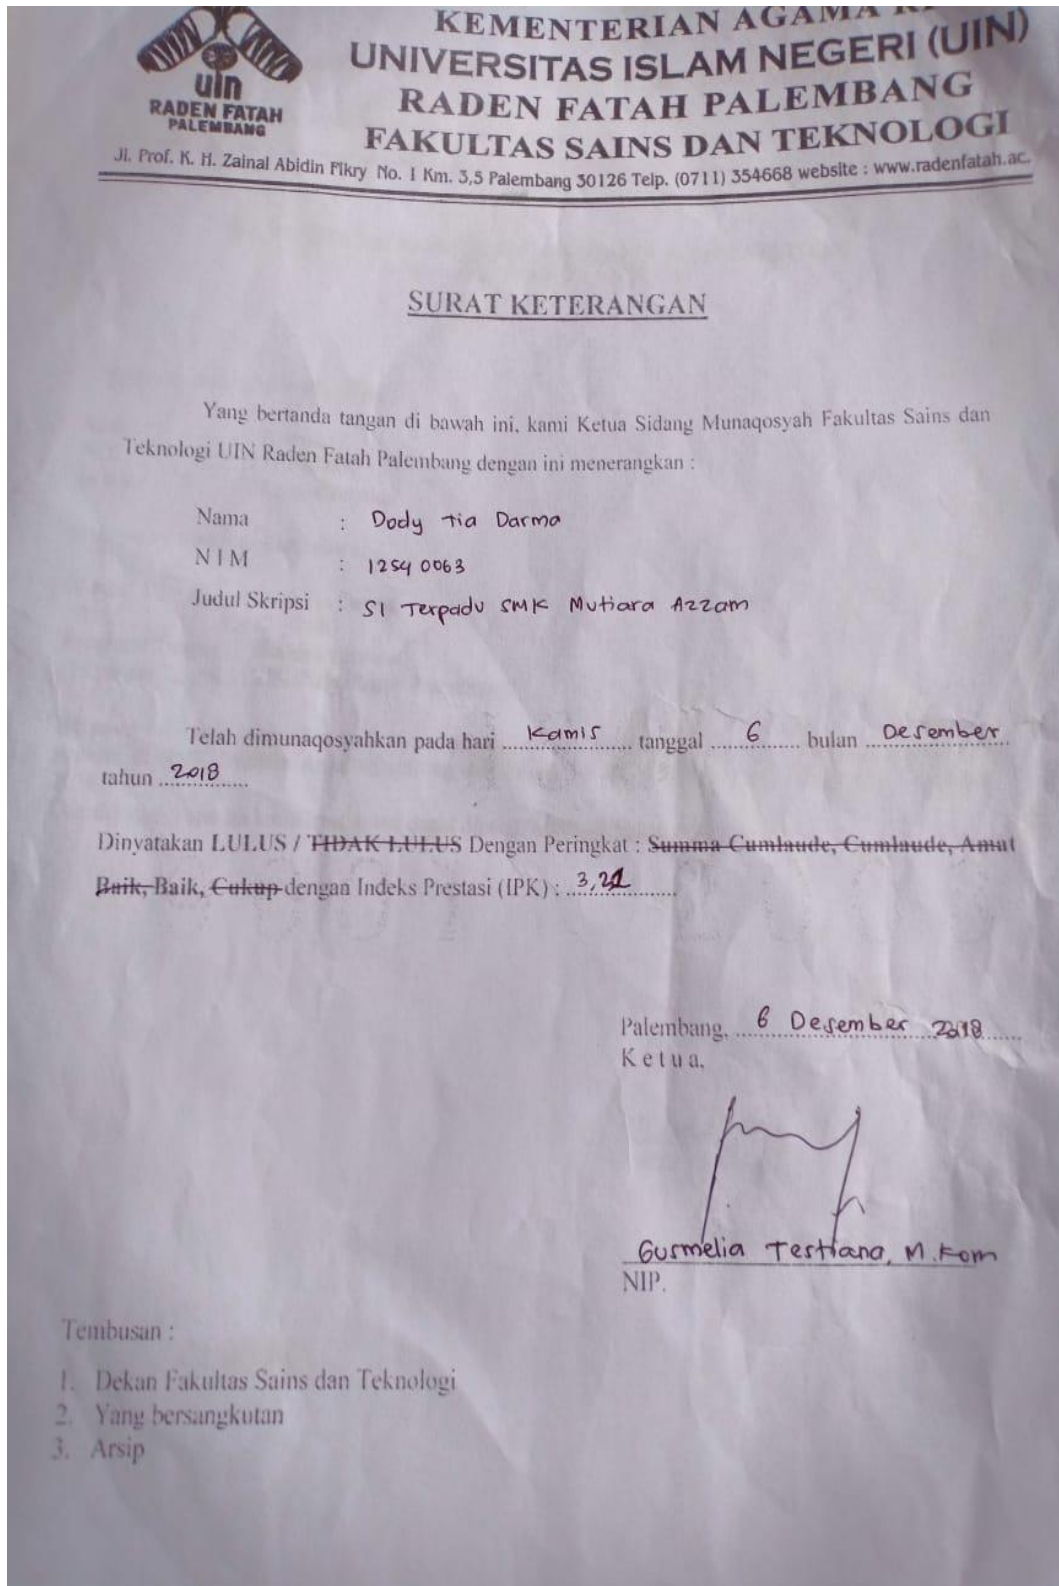 KEMENTERIAN AGAMA
UNIVERSITAS ISLAM NEGERI (UIN)
RADEN FATAH PALEMBANG
FAKULTAS SAINS DAN TEKNOLOGI
uin
RADEN FATAH
PALEMBANG
Jl. Prof. K. H. Zainal Abidin Fikry No. 1 Km. 3,5 Palembang 30126 Telp. (0711) 354668 website : www.radenfatah.ac.
SURAT KETERANGAN
Yang bertanda tangan di bawah ini, kami Ketua Sidang Munaqosyah Fakultas Sains dan
Teknologi UIN Raden Fatah Palembang dengan ini menerangkan :
Nama : Dody Tia Darma
N I M : 12540063
Judul Skripsi : SI Terpadu SMK Mutiara Azzam
Telah dimunaqosyahkan pada hari Kamis tanggal 6 bulan Desember
tahun 2018
Dinyatakan LULUS / TIDAK LULUS Dengan Peringkat : Summa Cumlaude, Cumlaude, Amat
Baik, Baik, Cukup dengan Indeks Prestasi (IPK) :
Palembang, 6 Desember 2018
K e t u a,
Gusmelia Testiana, M.Kom
NIP.
Tembusan :
1. Dekan Fakultas Sains dan Teknologi
2. Yang bersangkutan
3. Arsip